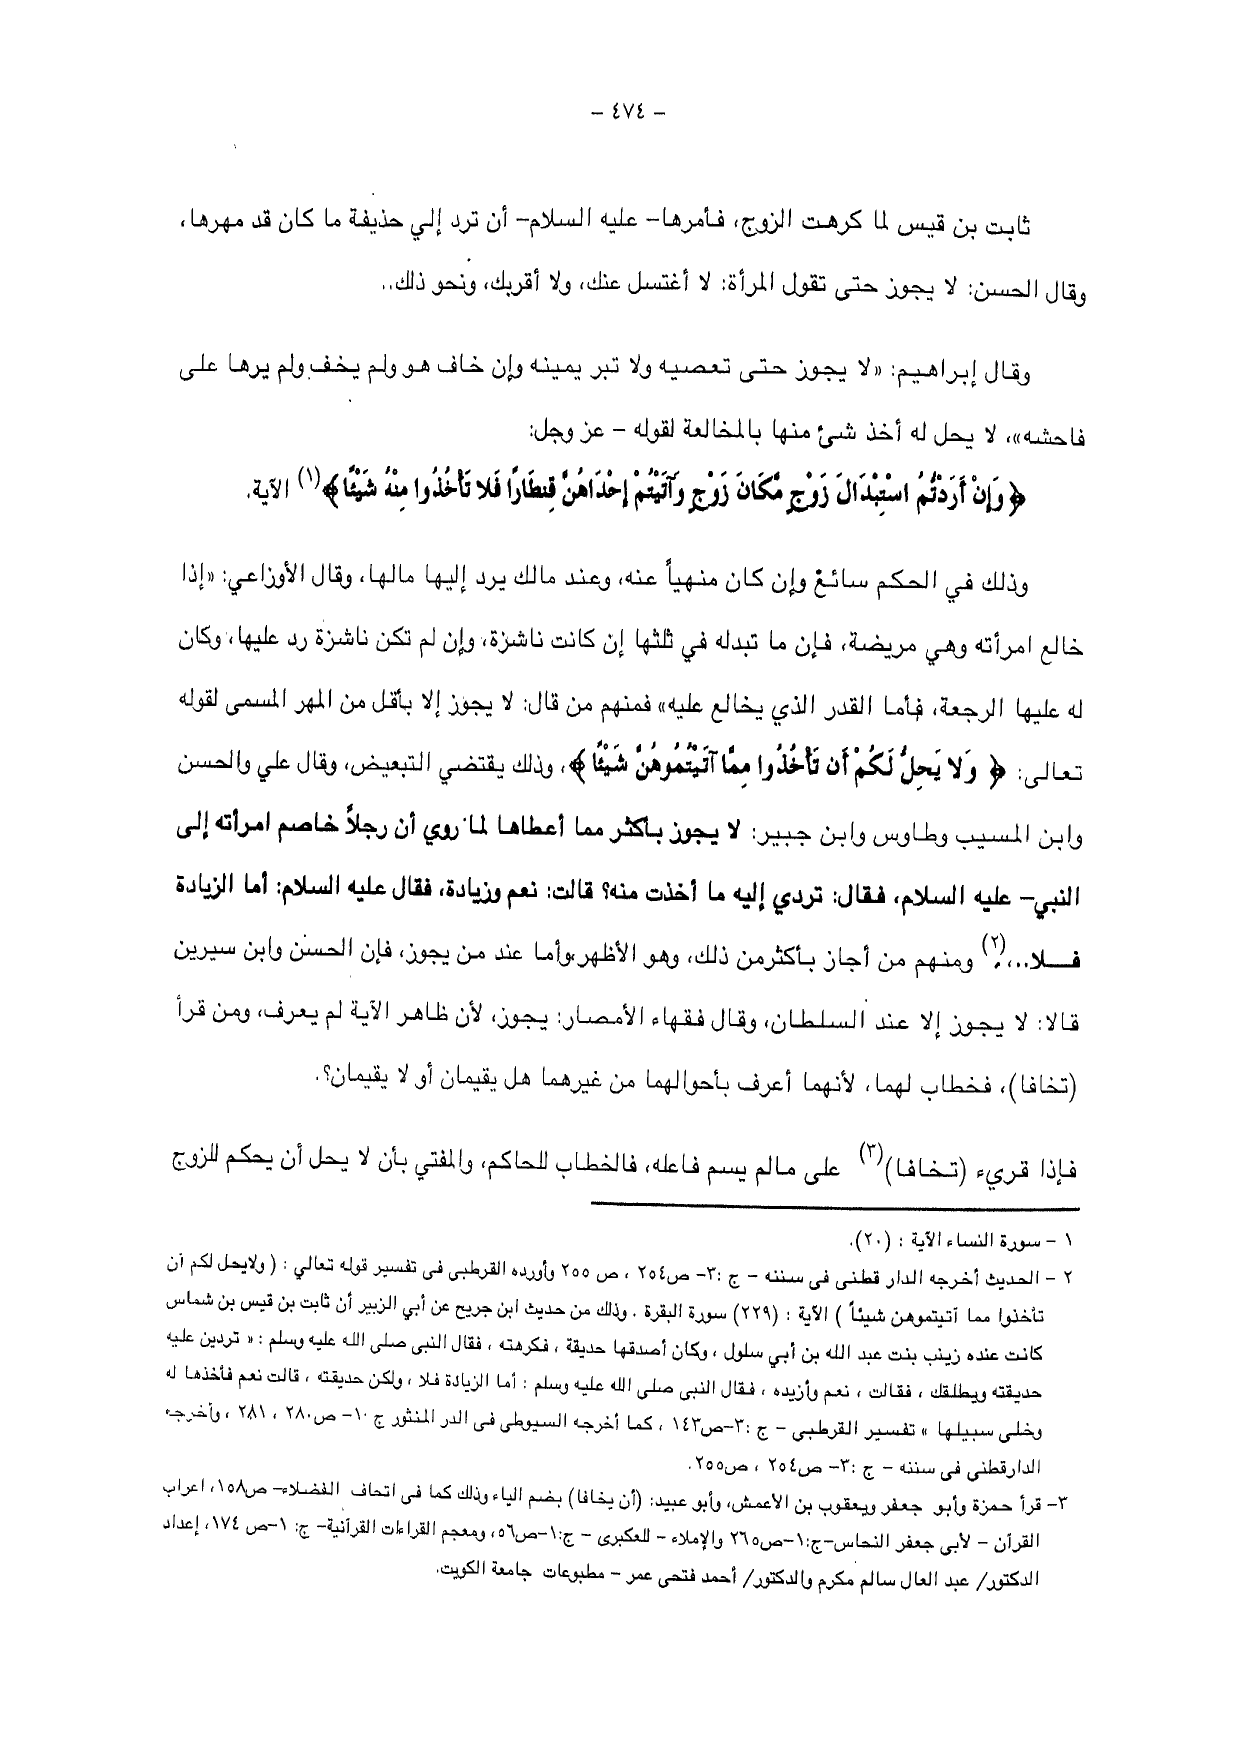 – ٤٧٤ –
ثابت بن قيس لما كرهت الزوج، فأمرها– عليه السلام– أن ترد إلي حذيفة ما كان قد مهرها،
وقال الحسن: لا يجوز حتى تقول المرأة: لا أغتسل عنك، ولا أقربك، ونحو ذلك..
وقال إبراهيم: «لا يجوز حتى تعصيه ولا تبر يمينه وإن خاف هو ولم يخف ولم يرها على
فاحشه»، لا يحل له أخذ شئ منها بالمخالعة لقوله – عز وجل:
﴿ وَإِنْ أَرَدْتُمُ اسْتِبْدَالَ زَوْجٍ مَّكَانَ زَوْجٍ وَآتَيْتُمْ إِحْدَاهُنَّ قِنطَارًا فَلا تَأْخُذُوا مِنْهُ شَيْئًا﴾(١) الآية.
وذلك في الحكم سائغ وإن كان منهياً عنه، وعند مالك يرد إليها مالها، وقال الأوزاعي: «إذا
خالع امرأته وهي مريضة، فإن ما تبدله في ثلثها إن كانت ناشزة، وإن لم تكن ناشزة رد عليها، وكان
له عليها الرجعة، فأما القدر الذي يخالع عليه» فمنهم من قال: لا يجوز إلا بأقل من المهر المسمى لقوله
تعالى: ﴿ وَلا يَحِلُّ لَكُمْ أَن تَأْخُذُوا مِمَّا آتَيْتُمُوهُنَّ شَيْئًا ﴾، وذلك يقتضي التبعيض، وقال علي والحسن
وابن المسيب وطاوس وابن جبير: لا يجوز بأكثر مما أعطاها لما روي أن رجلاً خاصم امرأته إلى
النبي– عليه السلام، فقال: تردي إليه ما أخذت منه؟ قالت: نعم وزيادة، فقال عليه السلام: أما الزيادة
فــلا...(٢) ومنهم من أجاز بأكثرمن ذلك، وهو الأظهر،وأما عند من يجوز، فإن الحسن وابن سيرين
قالا: لا يجوز إلا عند السلطان، وقال فقهاء الأمصار: يجوز، لأن ظاهر الآية لم يعرف، ومن قرأ
(تخافا)، فخطاب لهما، لأنهما أعرف بأحوالهما من غيرهما هل يقيمان أو لا يقيمان؟.
فإذا قريء (تخافا)(٣) على مالم يسم فاعله، فالخطاب للحاكم، والمفتي بأن لا يحل أن يحكم للزوج
١ – سورة النساء الآية : (٢٠).
٢ – الحديث أخرجه الدار قطنى فى سننه – ج :٣– ص٢٥٤ ، ص ٢٥٥ وأورده القرطبي فى تفسير قوله تعالي : ( ولايحل لكم أن
تأخذوا مما آتيتموهن شيئاً ) الآية : (٢٢٩) سورة البقرة . وذلك من حديث ابن جريح عن أبي الزبير أن ثابت بن قيس بن شماس
كانت عنده زينب بنت عبد الله بن أبي سلول ، وكان أصدقها حديقة ، فكرهته ، فقال النبى صلى الله عليه وسلم : « تردين عليه
حديقته ويطلقك ، فقالت ، نعم وأزيده ، فقال النبي صلى الله عليه وسلم : أما الزيادة فلا ، ولكن حديقته ، قالت نعم فأخذها له
وخلى سبيلها » تفسير القرطبي – ج :٣–ص١٤٣ ، كما أخرجه السيوطي فى الدر المنثور ج ١٠– ص٢٨٠ ، ٢٨١ ، وأخرجه
الدارقطني فى سننه – ج :٣– ص٢٥٤ ، ص٢٥٥.
٣– قرأ حمزة وأبو جعفر ويعقوب بن الاعمش، وأبو عبيد: (أن يخافا) بضم الياء وذلك كما فى اتحاف الفضلاء– ص١٥٨، اعراب
القرآن – لأبي جعفر النحاس–ج:١–ص٢٦٥ والإملاء – للعكبرى – ج:١–ص٥٦، ومعجم القراءات القرآنية– ج: ١–ص ١٧٤، إعداد
الدكتور/ عبد العال سالم مكرم والدكتور/ أحمد فتحى عمر – مطبوعات جامعة الكويت.